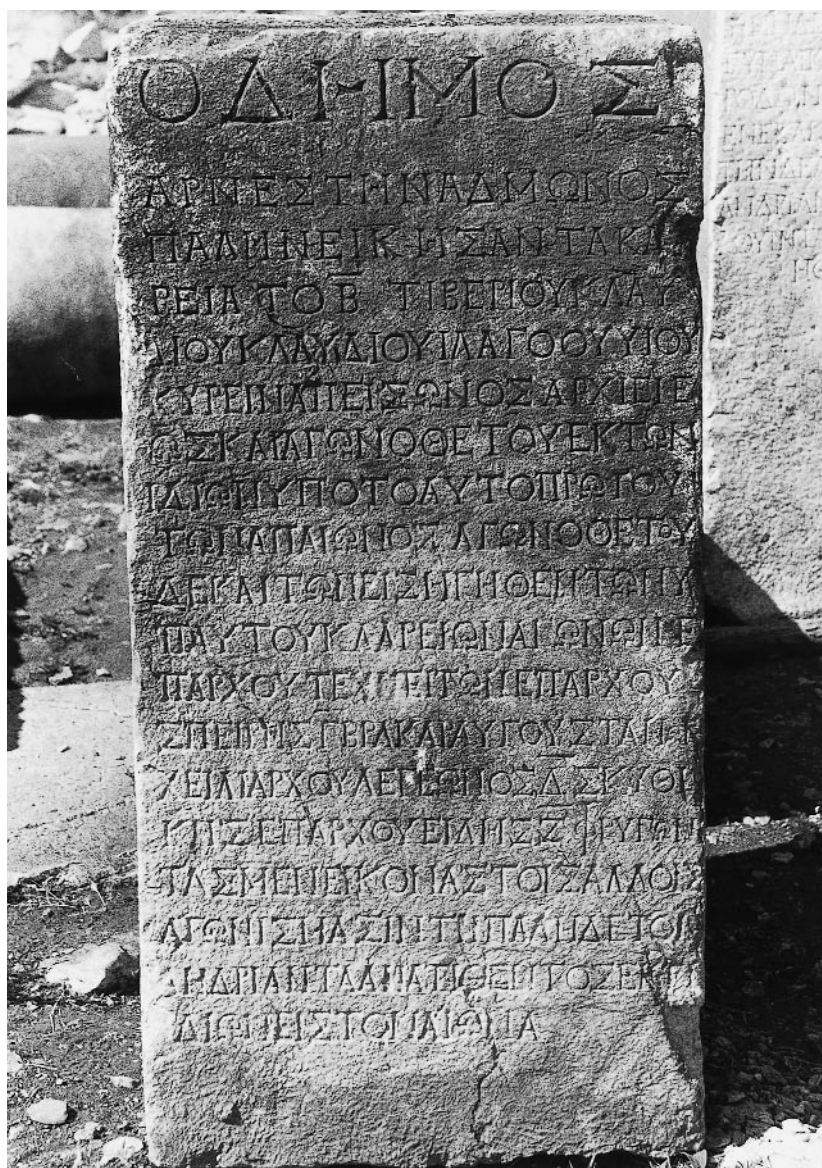 Ο ΔΗΜΟΣ
ΑΡΝΕΣΤΗΝΑΔΜΩΝΟΣ
ΠΑΛΗΝΕΙΚΗΣΑΝΤΑΚΛΑ
ΡΕΙΑ ΤΟ Β̅ ΤΙΒΕΡΙΟΥΚΛΑΥ
ΔΙΟΥΚΛΑΥΔΙΟΥΙΛΑΓΟΟΥΥΙΟΥ
ΚΥΡΕΙΝΑΠΕΙΣΩΝΟΣΑΡΧΙΕΡΕ
ΩΣΚΑΙΑΓΩΝΟΘΕΤΟΥΕΚΤΩΝ
ΙΔΙΩΝΥΠΟΤΟΑΥΤΟΠΡΩΤΟΥ
ΤΩΝΑΠΑΙΩΝΟΣΑΓΩΝΟΘΕΤΟΥ
ΔΕΚΑΙΤΩΝΕΙΣΗΓΗΘΕΝΤΩΝΥ
ΠΑΥΤΟΥΚΛΑΡΕΙΩΝΑΓΩΝΩΝΕ
ΠΑΡΧΟΥΤΕΧΝΕΙΤΩΝΕΠΑΡΧΟΥ
ΣΠΕΙΡΗΣΓ̅ΒΡΑΚΑΡΑΥΓΟΥΣΤΑΝΗΣ
ΧΕΙΛΙΑΡΧΟΥΛΕΓΕΩΝΟΣΔ̅ΣΚΥΘΙ
ΚΗΣΕΠΑΡΧΟΥΕΙΛΗΣΖ̅ΦΡΥΓΩΝ
ΤΑΣΜΕΝΕΙΚΟΝΑΣΤΟΙΣΑΛΛΟΙΣ
ΑΓΩΝΙΣΜΑΣΙΝΤΗΠΑΛΗΔΕΤΟΝ
ΑΝΔΡΙΑΝΤΑΑΝΑΤΙΘΕΝΤΟΣΕΚΤΩΝΙ
ΔΙΩΝΕΙΣΤΟΝΑΙΩΝΑ